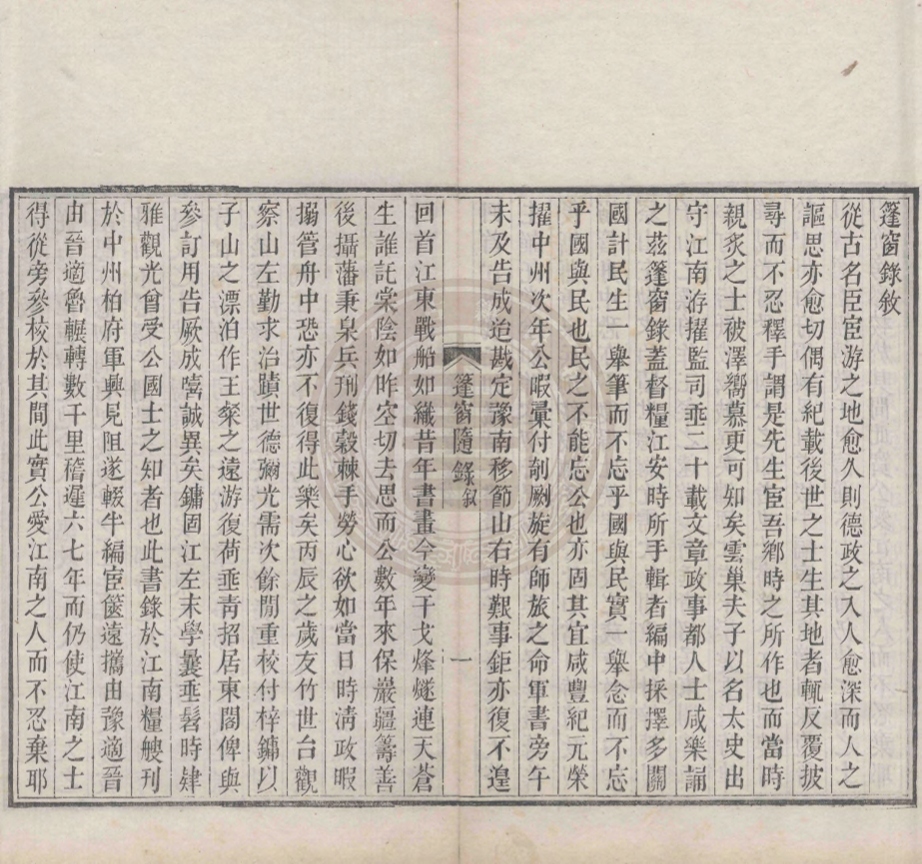 篷窗錄敘
從古名臣宦游之地愈久則德政之入人愈深而人之
謳思亦愈切偶有紀載後世之士生其地者輒反覆披
尋而不忍釋手謂是先生宦吾鄉時之所作也而當時
親炙之士被澤嚮慕更可知矣雲巢夫子以名太史出
守江南游擢監司垂二十載文章政事都人士咸樂誦
之茲篷窗錄蓋督糧江安時所手輯者編中採擇多關
國計民生一舉筆而不忘乎國與民實一舉念而不忘
乎國與民也民之不能忘公也亦固其宜咸豐紀元榮
擢中州次年公暇彙付剞劂旋有師旅之命軍書旁午
未及告成迨戡定豫南移節山右時艱事鉅亦復不遑
篷窗隨錄 敘 一
回首江東戰船如織昔年書畫今變干戈烽燧連天蒼
生誰託棠陰如昨空切去思而公數年來保巖疆籌善
後攝藩秉臬兵刑錢穀棘手勞心欲如當日時淸政暇
搦管舟中恐亦不復得此樂矣丙辰之歲友竹世台觀
察山左勤求治蹟世德彌光需次餘閒重校付梓鏞以
子山之漂泊作王粲之遠游復荷垂靑招居東閣俾與
參訂用告厥成噫誠異矣鏞固江左末學曩垂髫時肄
雅觀光曾受公國士之知者也此書錄於江南糧艘刊
於中州柏府軍興見阻遂輟半編宦篋遠攜由豫適晉
由晉適魯輾轉數千里稽遲六七年而仍使江南之士
得從旁參校於其間此實公愛江南之人而不忍棄耶